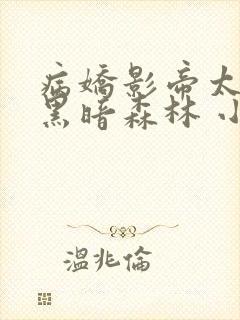 病嬌影帝太
黑暗森林小
溫兆倫